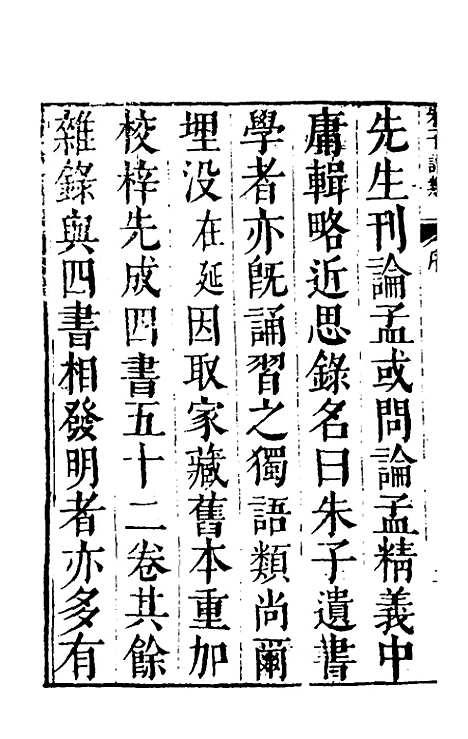 先生刊論孟或問論孟精義中
庸輯略近思錄名曰朱子遺書
學者亦旣誦習之獨語類尚爾
埋没在延因取家藏舊本重加
校梓先成四書五十二卷其餘
雜錄與四書相發明者亦多有